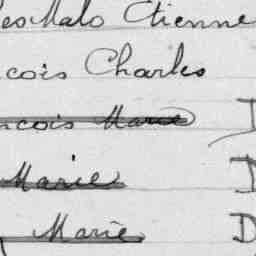 Malo Etienne
cois Charles
ncois Marie
Marie D
Marie D